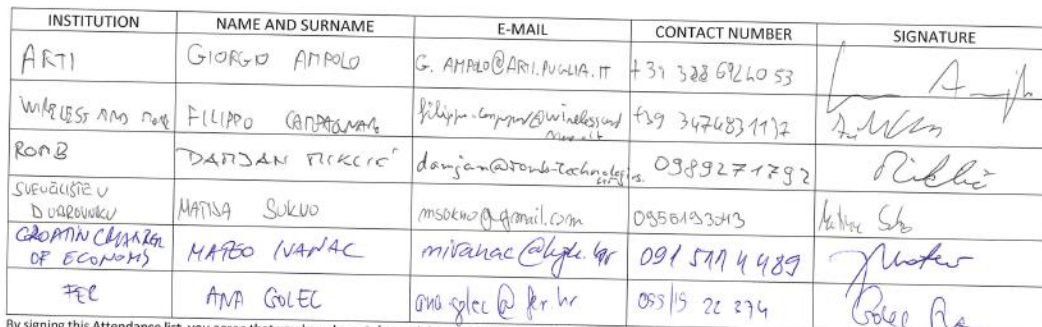 INSTITUTION NAME AND SURNAME E-MAIL CONTACT NUMBER SIGNATURE
ARTI GIORGIO AMPOLO G. AMPOLO@ARTI.PUGLIA.IT +39 328 6924053
WIRELESS AND MORE FILIPPO CAMPAGNARO +39 3474831137
ROMB DAMJAN MIKLIĆ damjan@romb-technologies. 0989271792 Miklić
SVEUČILIŠTE U
DUBROVNIKU MATIJA SOKNO msokno@gmail.com
CROATIN CHAMBER
OF ECONOMS MATEO IVANAC mivanac@hgk.hr 091 511 4489
FER ANA GOLEC ana.golec@fer.hr
By signing this Attendance list, you agree that you